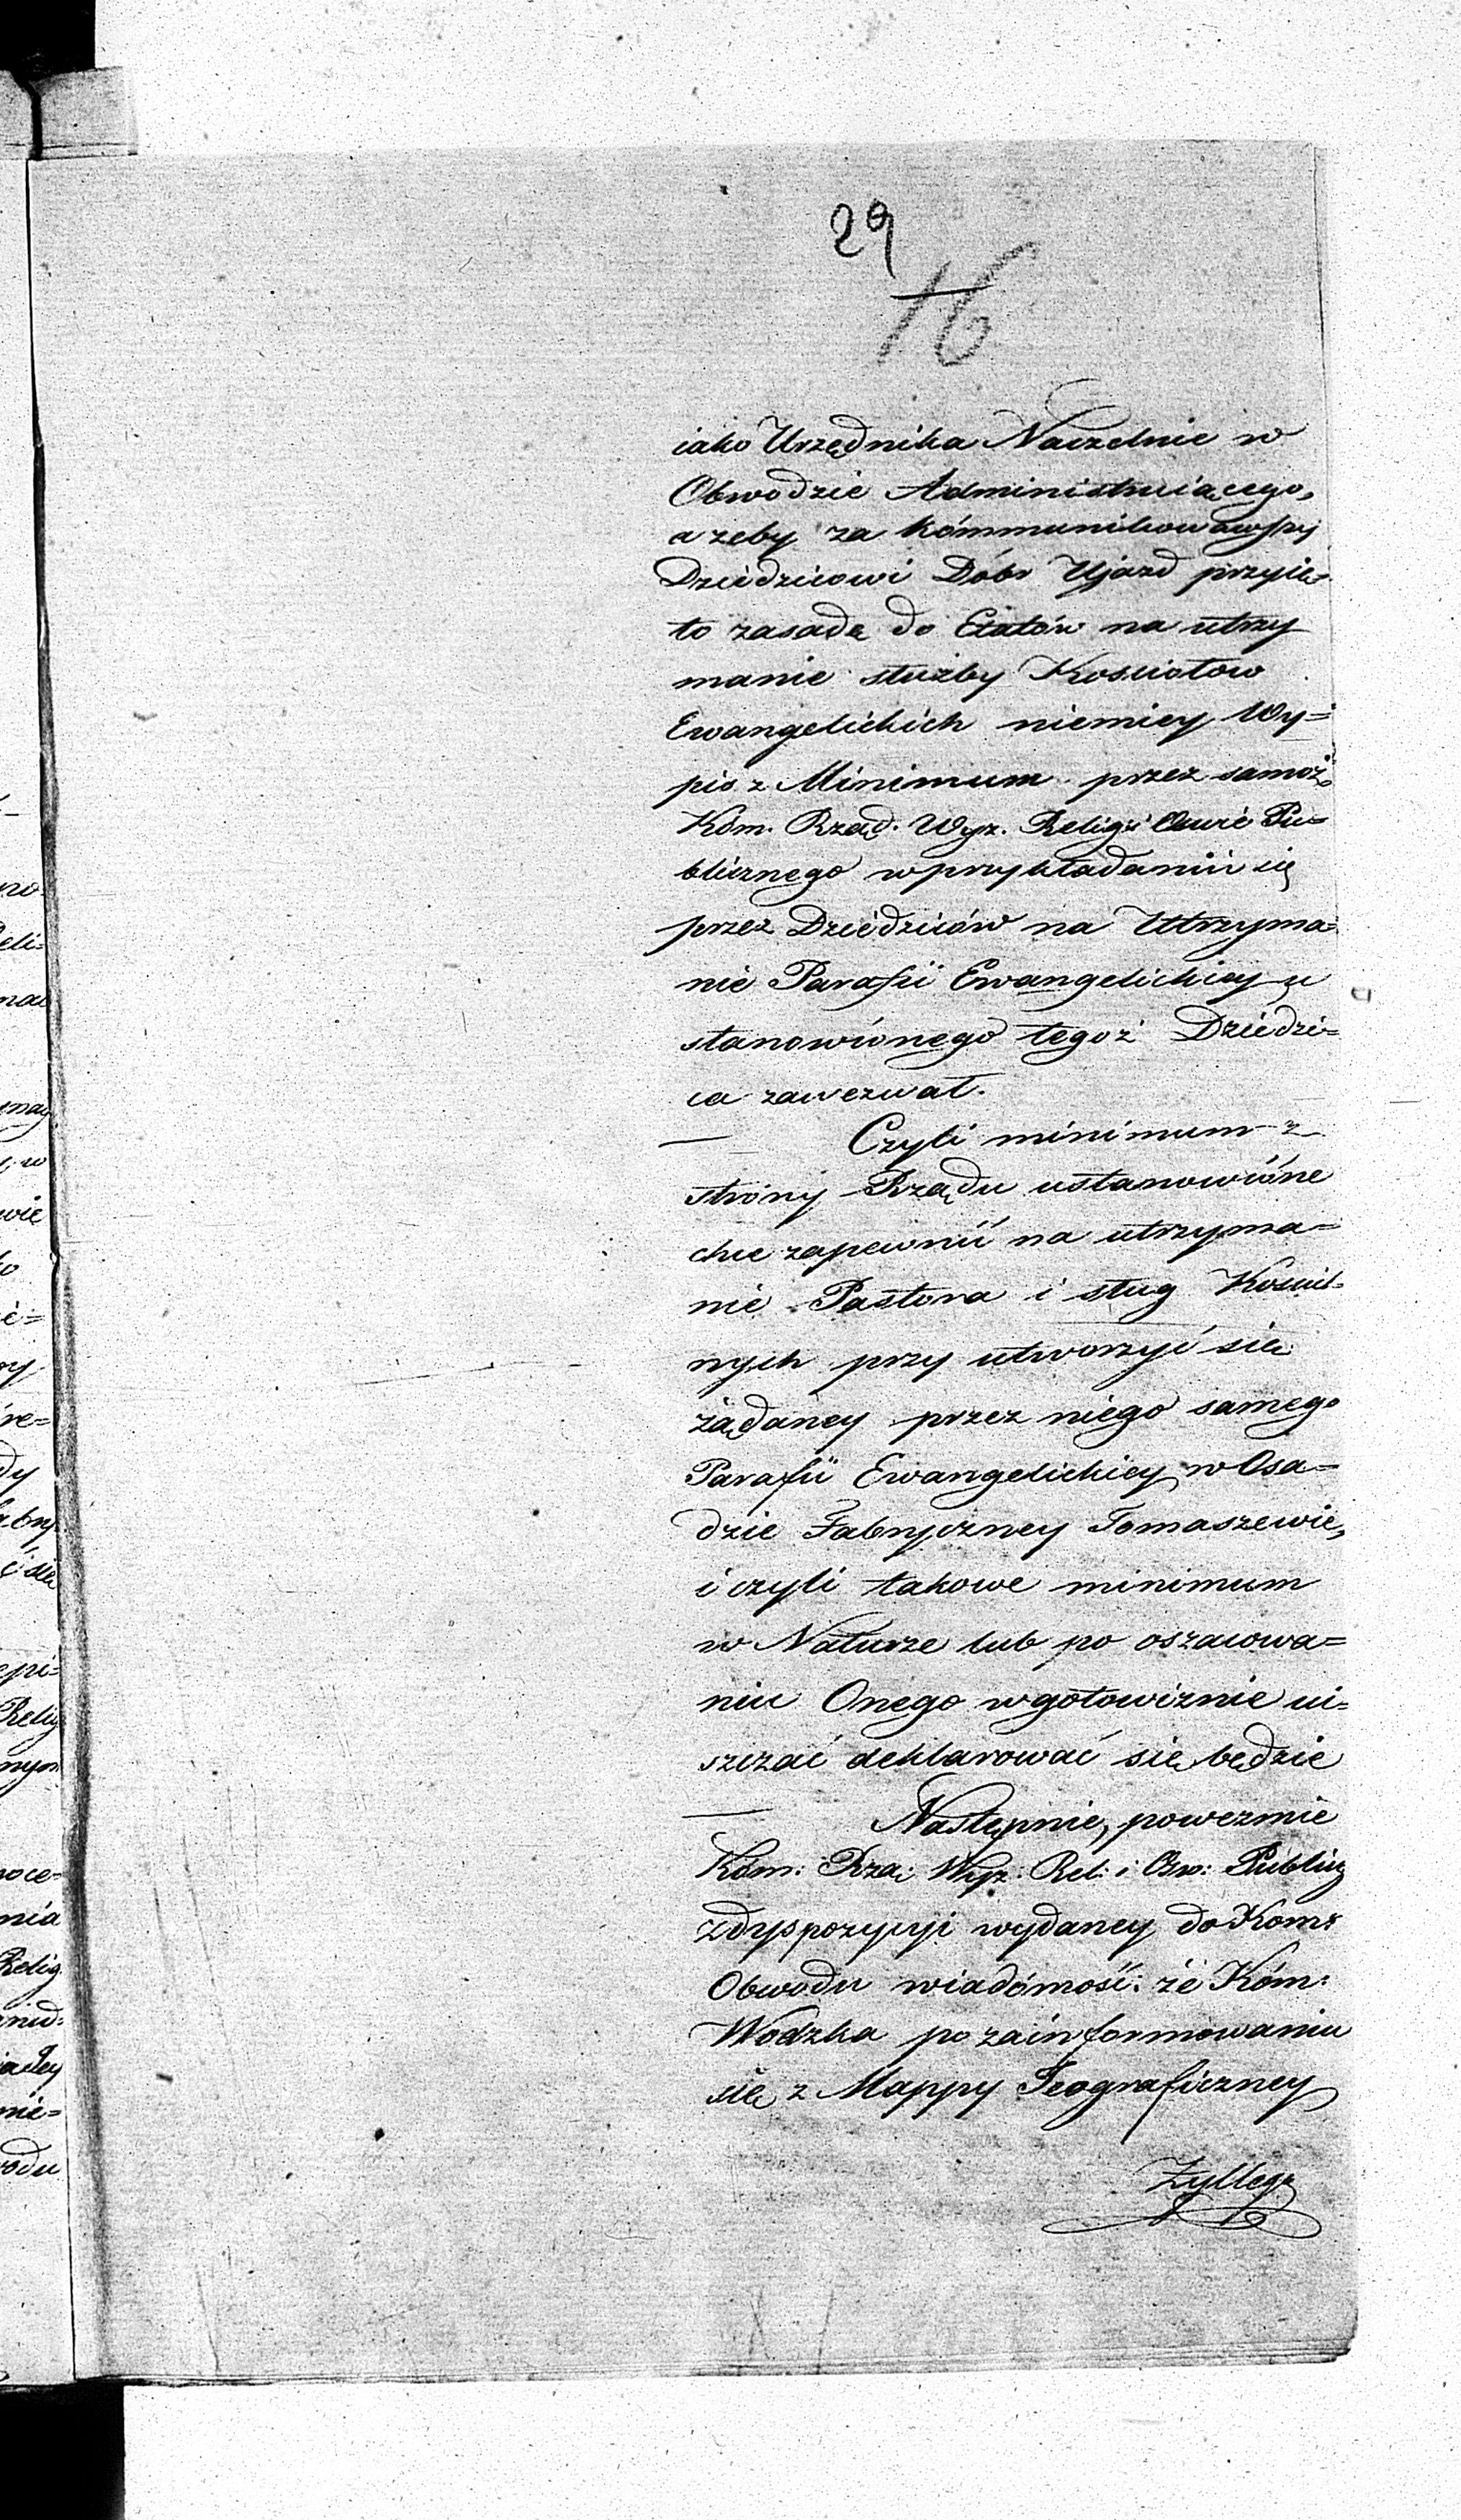 29
16
iako Urzędnika Naczelnie w
Obwodzie Administruiącego,
a żeby za kómmunikowawszy
Dziedzicowi Dóbr Ujazd przyię-
to zasadę do Etatów na utrzy
manie służby Kosciołow
Ewangelickich niemiey Wy=
pis z Minimum przez samoż
Kóm. Rząd. Wyz. Religii Oswié Pu=
blicznego w przykładaniu się
przez Dziedziców na Utrzyma=
nie Parafii Ewangelickiey u
stanowiónego tegoż Dziedzi=
ca zawezwał.
Czyli minimum z
stróny Rządu ustanowióne
chce zapewnić na utrzyma=
nie Pastora i sług Kosciel-
nych przy utworzyć się
żądaney przez niego samego
Parafii Ewangelickiey w Osa=
dzie Fabryczney Tomaszewie,
i czyli takowe minimum
w Naturze lub po oszacowa=
niu Onego w gotowiznie ui=
szczać deklarować się będzie
Następnie, powezmie
Kóm: Rzą: Wyz: Rel: i Osw: Publicz
z dyspozycyi wydaney do Kom:
Obwodu wiadómość: że Kóm:
Wodzka po zainformowaniu
się z Mappy Jeograficzney